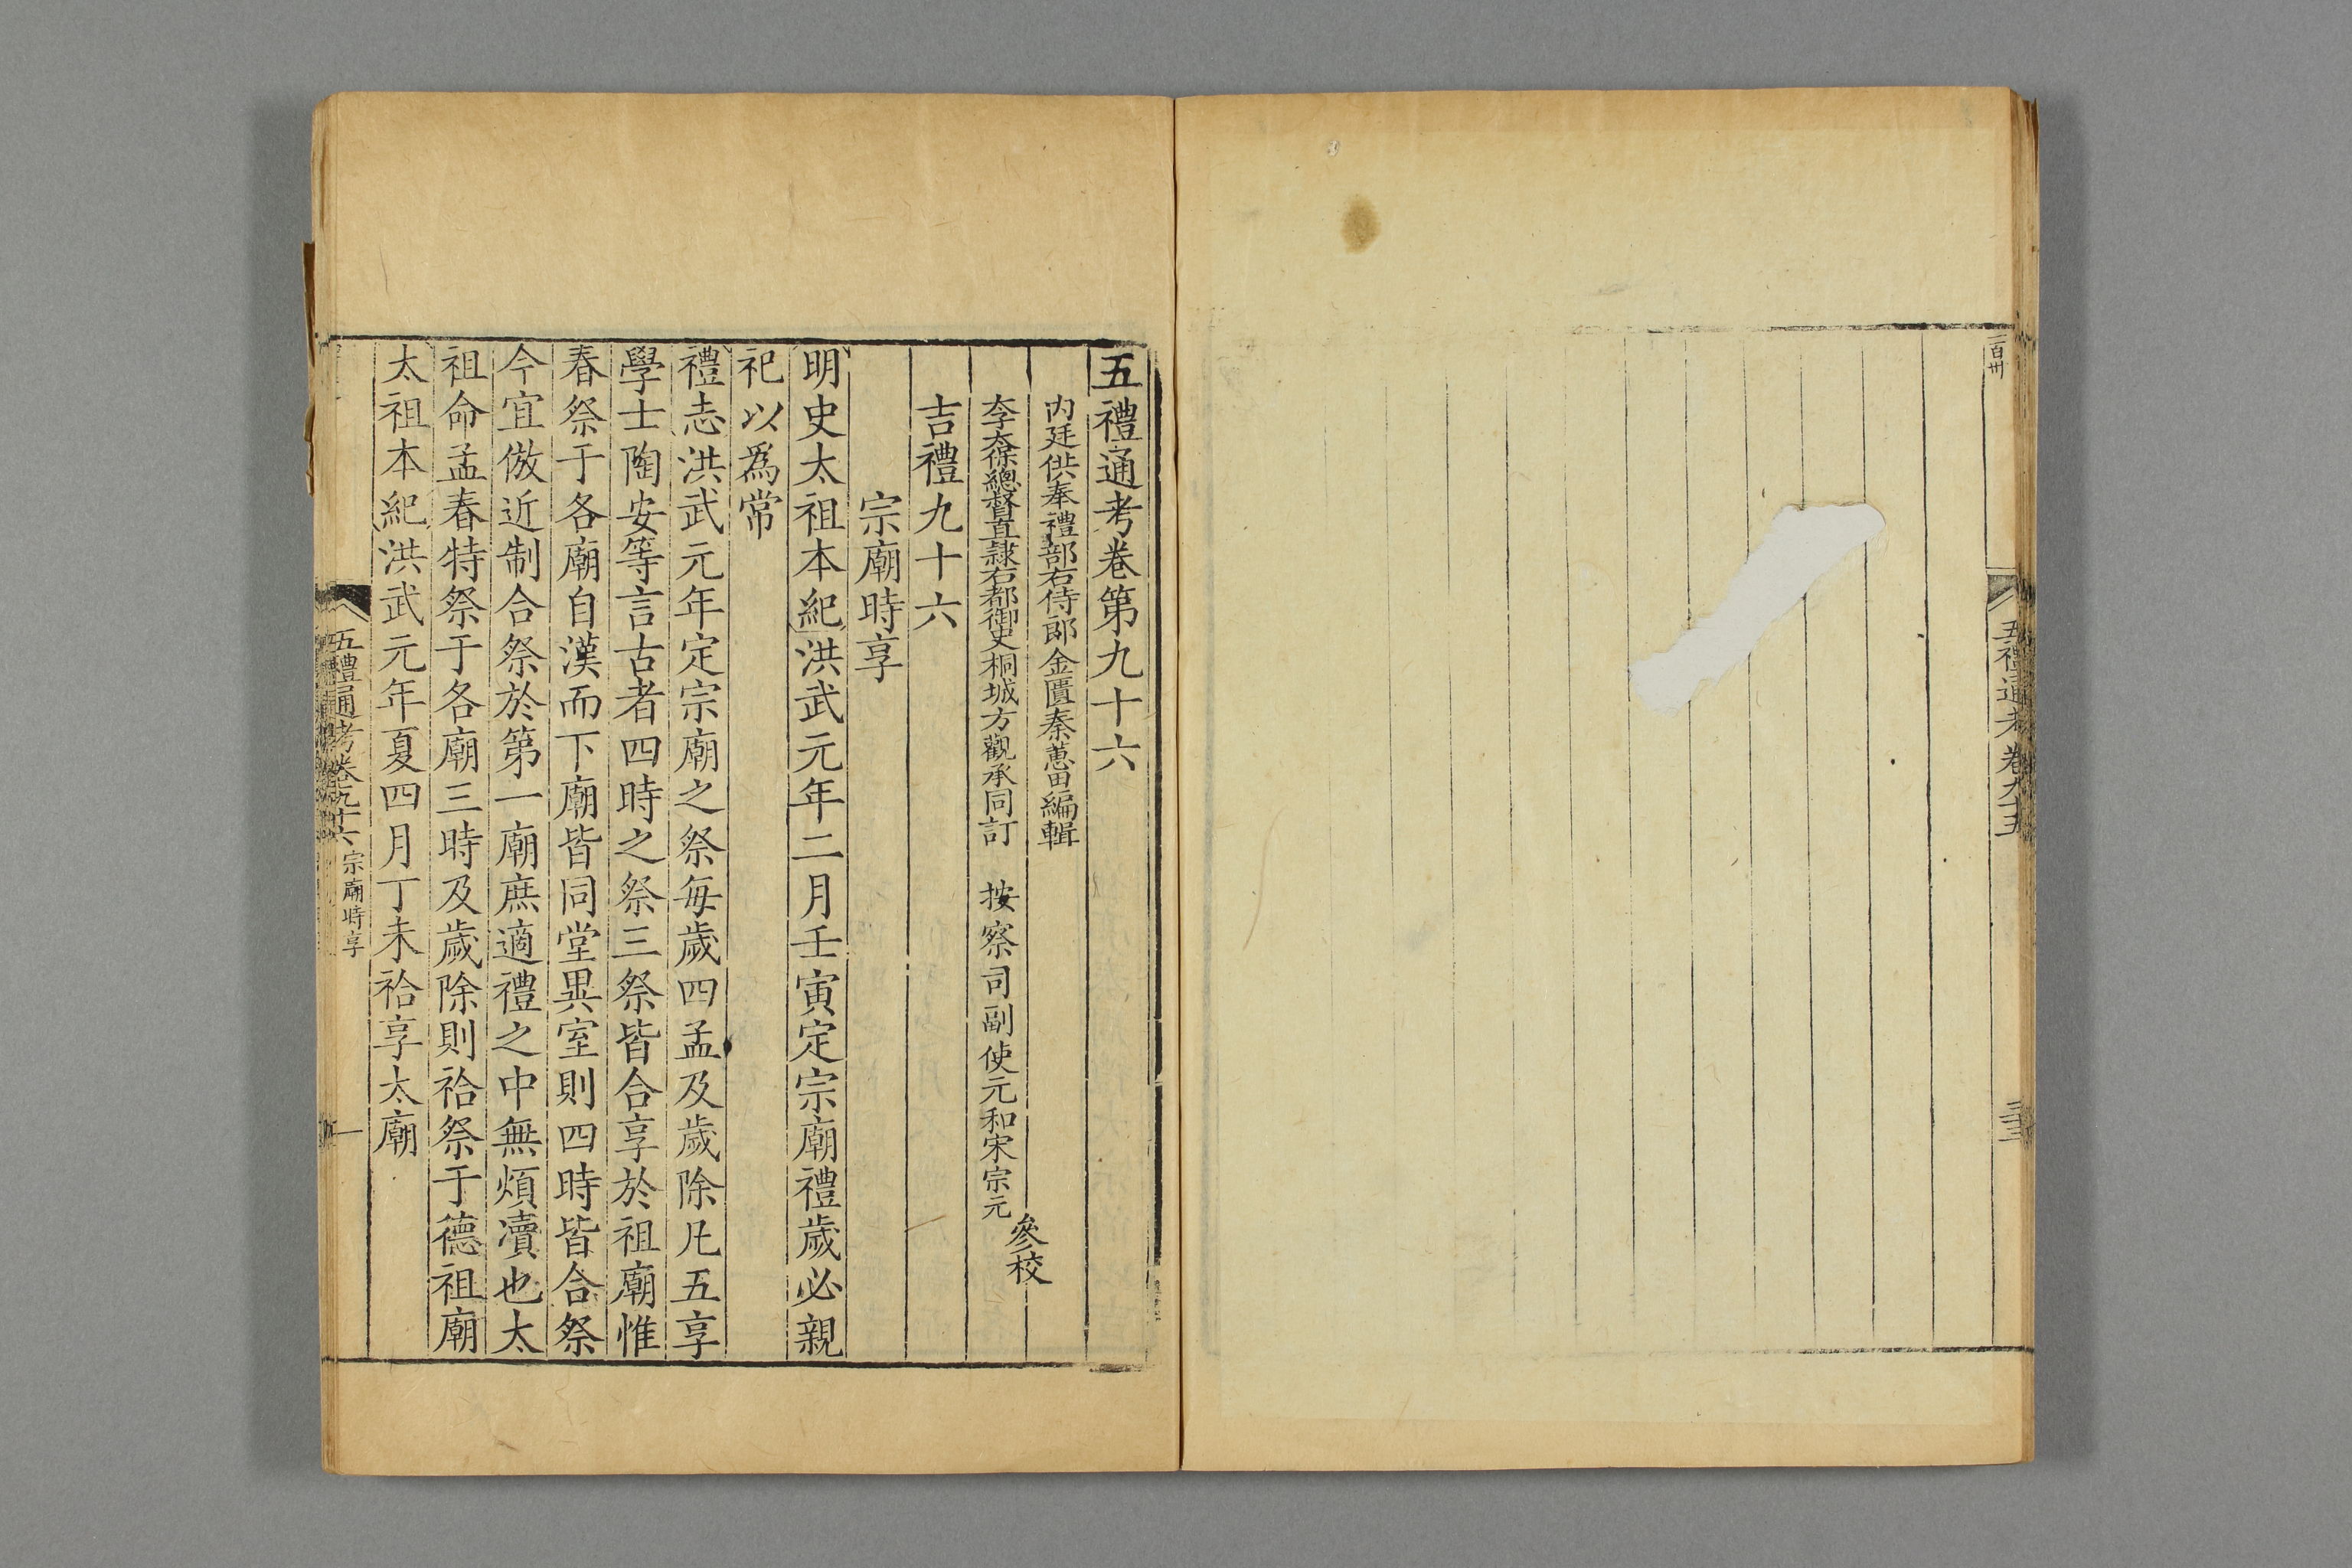 五禮通考卷九十五
五禮通考卷第九十六
内廷供奉禮部右侍郎金匱秦蕙田編輯
太子太保總督直隸右都御史桐城方觀承同訂 按察司副使元和宋宗元
參校
吉禮九十六
宗廟時享
明史太祖本紀洪武元年二月壬寅定宗廟禮歲必親
祀以爲常
禮志洪武元年定宗廟之祭每歲四孟及歲除凡五享
學士陶安等言古者四時之祭三祭皆合享於祖廟惟
春祭于各廟自漢而下廟皆同堂異室則四時皆合祭
今宜倣近制合祭於第一廟庶適禮之中無煩瀆也太
祖命孟春特祭于各廟三時及歲除則祫祭于德祖廟
太祖本紀洪武元年夏四月丁未祫享太廟
五禮通考卷九十六 宗廟時享 一